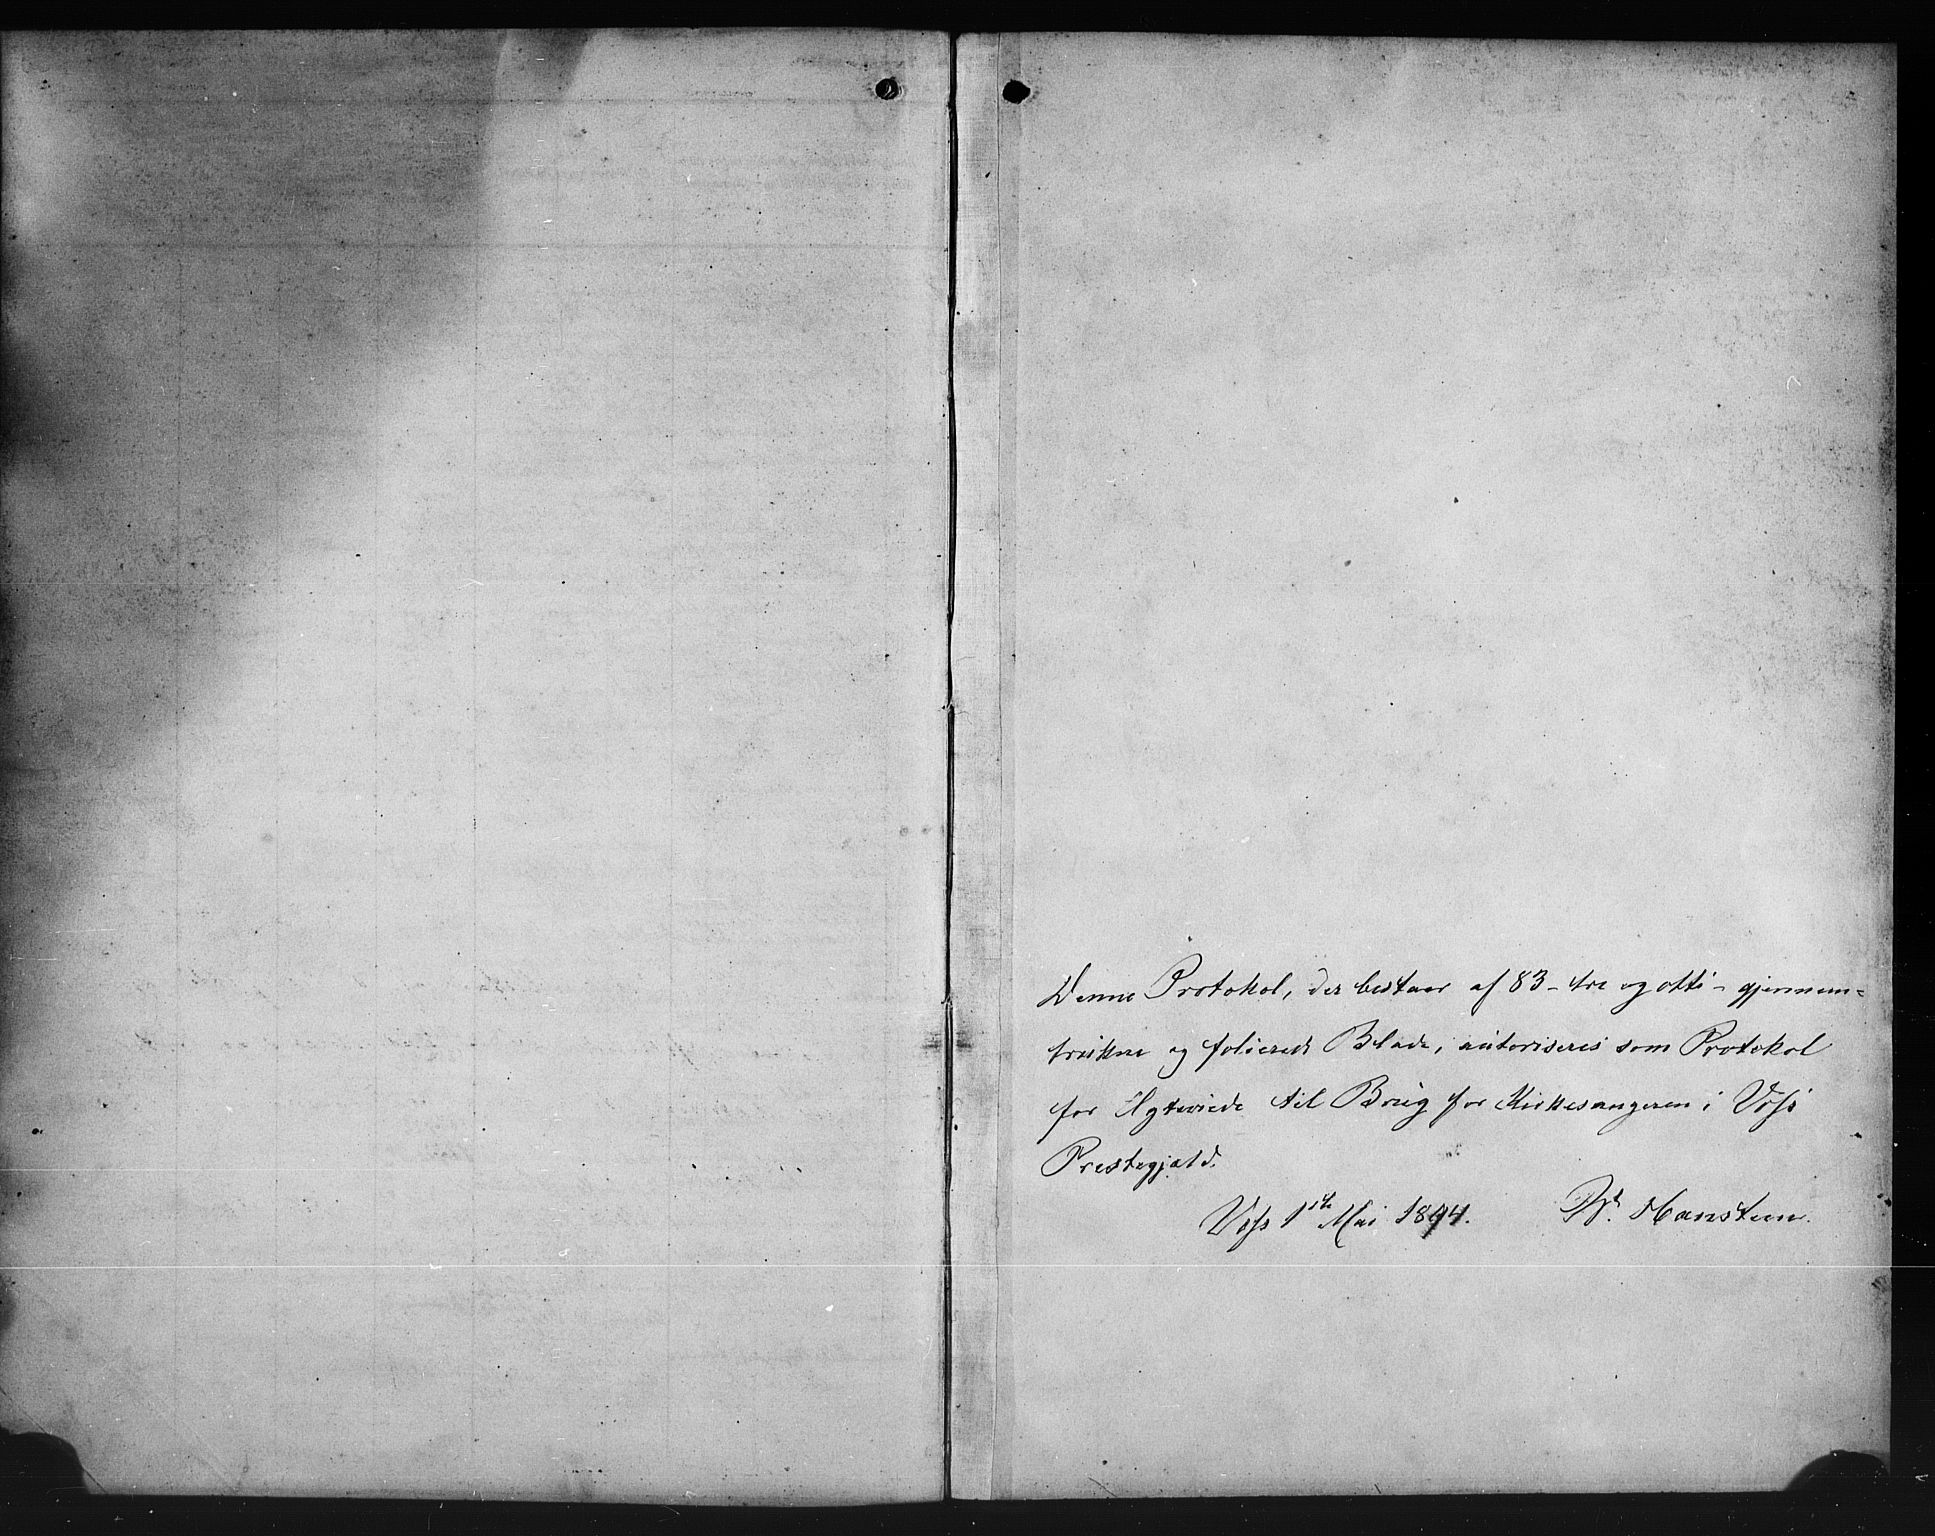 Denne Protokol, der bestaar af 83 - tre og otti - gjennem=
trukne og folierede Blade, autoriseres som Protokol
for Ægteviede til Brug for Kirkesangeren i Voss
Prestegjæld.
Voss 1ste Mai 1894. Hansteen.